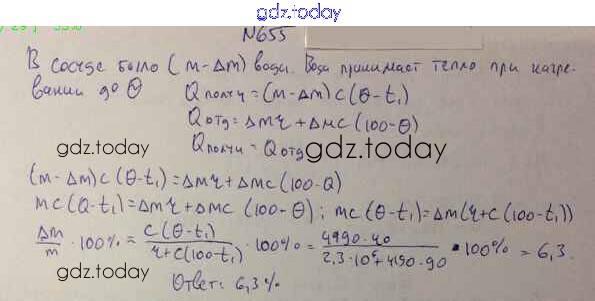 gdz.today
N655
В сосуде было (m-Δm) воды. Вода принимает тепло при нагре-
вании до Θ Qполуч = (m-Δm)c(Θ-t₁)
Qотд = Δmr + Δmc(100-Θ)
Qполуч = Qотд gdz.today
gdz.today
(m-Δm)c(Θ-t₁) = Δmr + Δmc(100-Q)
mc(Q-t₁) = Δmr + Δmc(100-Θ); mc(Θ-t₁) = Δm(r+c(100-t₁))
Δm/m · 100% = c(Θ-t₁)/r+c(100-t₁) · 100% = 4190·40/2,3·10⁶+4190·90 · 100% = 6,3.
gdz.today Ответ: 6,3%